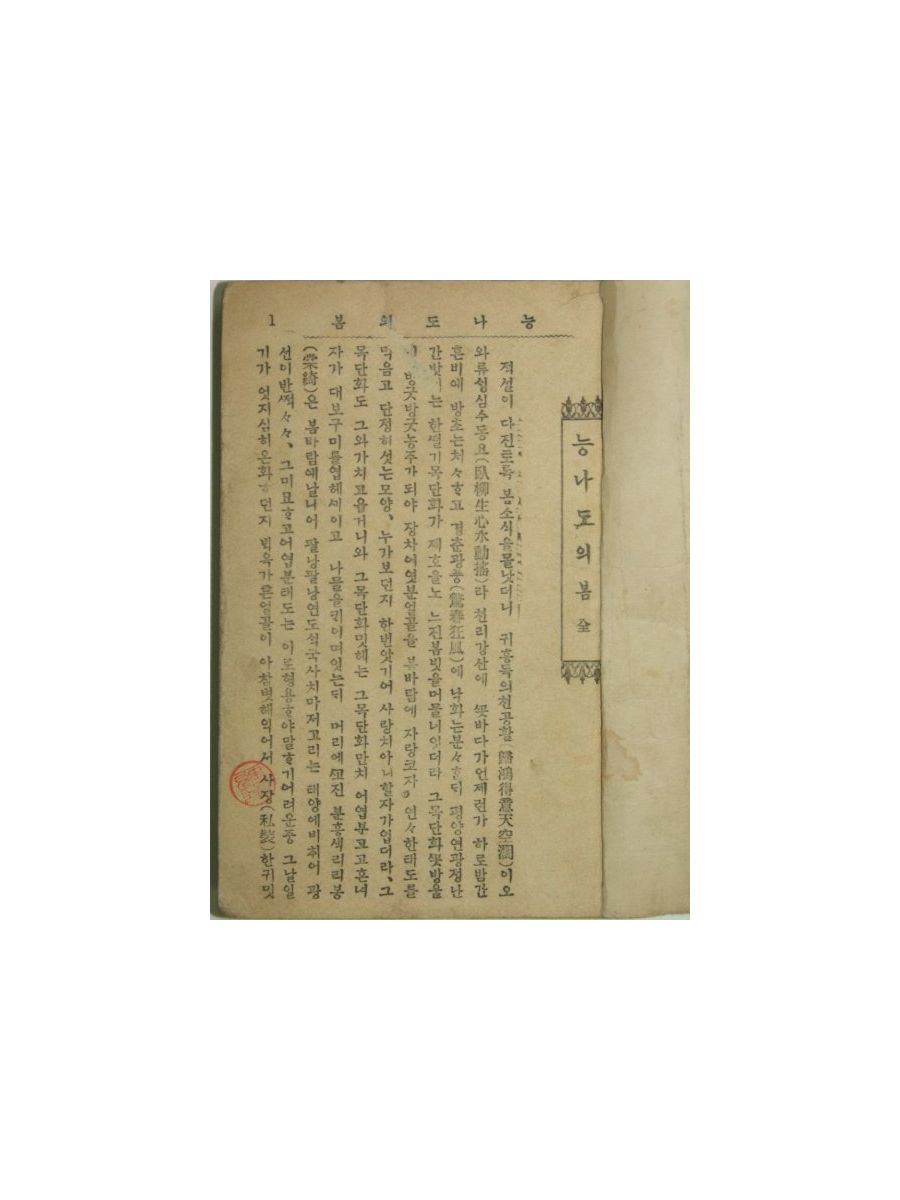 능나도의봄 1
능나도의봄 全
적설이 다진토록 봄소식을몰낫더니 귀홍득의천공활(歸鴻得意天空濶)이오
와류성심수동요(臥柳生心水動搖)라 천리강산에 꼿바다가언제런가 하로밤간
흔비에 방초는처々ᄒᆞ고 경춘광풍(驚春狂風)에 낙화는분々ᄒᆞᆫ되 평양연광정난
간밧게는 한떨기목단화가 제호을노 느진봄빗을머물너잇더라 그목단화꼿방울
방긋방긋농주가되야 장차어엿분얼골을 봄바람에 자랑코자 연々한태도를
먹음고 단정히섯는모양、누가보던지 한번앗기어 사랑치아니할자가업더라、그
목단화도 그와가치고읍거니와 그목단화밋헤는 그목단화만치 어엽부고고흔녀
자가 대보구미를엽헤세이고 나물을키이며잇는되 머리에 분홍색리리봉
은 봄바람에날니어 팔낭팔낭연도석국사치마저고리는 태양에비취어 광
선이반쩍々々、그미묘ᄒᆞ고어엽분태도는 이로형용ᄒᆞ야말ᄒᆞ기어려운중 그날일
기가 엇지심히온화ᄒᆞ던지 백옥가튼얼골이 아참볏헤익어서 사장(私裝)한귀밋